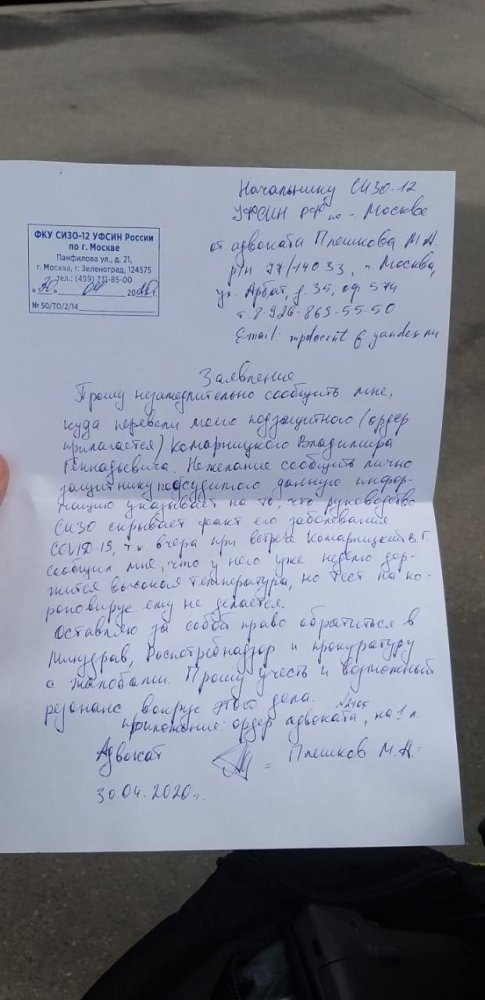 Начальнику СИЗО-12
УФСИН РФ по г. Москве
от адвоката Плешкова М.А.
р/н 77/14033, г. Москва,
ул. Арбат, д. 35, оф. 574
т. 8-926-863-55-50
E-mail: mpdocent@yandex.ru
ФКУ СИЗО-12 УФСИН России
по г. Москве
Панфилова ул., д. 21,
г. Москва, г. Зеленоград, 124575
тел.: (499) 731-85-00
« 30 » 04 2020 г.
№ 50/ТО/2/14
Заявление
Прошу незамедлительно сообщить мне,
куда перевели моего подзащитного (ордер
прилагается) Комарницкого Владимира
Геннадьевича. Нежелание сообщить лично
защитнику подсудимого данную инфор-
мацию указывает на то, что руководство
СИЗО скрывает факт его заболевания
COVID-19, т.к. вчера при встрече Комарницкий В.Г.
сообщил мне, что у него уже неделю дер-
жится высокая температура, но тест на ко-
роновирус ему не делается.
Оставляю за собой право обратиться в
Минздрав, Роспотребнадзор и прокуратуру
с жалобами. Прошу учесть и возможный
резонанс вокруг этого дела.
приложение: ордер адвоката, на 1 л.
Адвокат Плешков М.А.
30.04.2020 г.